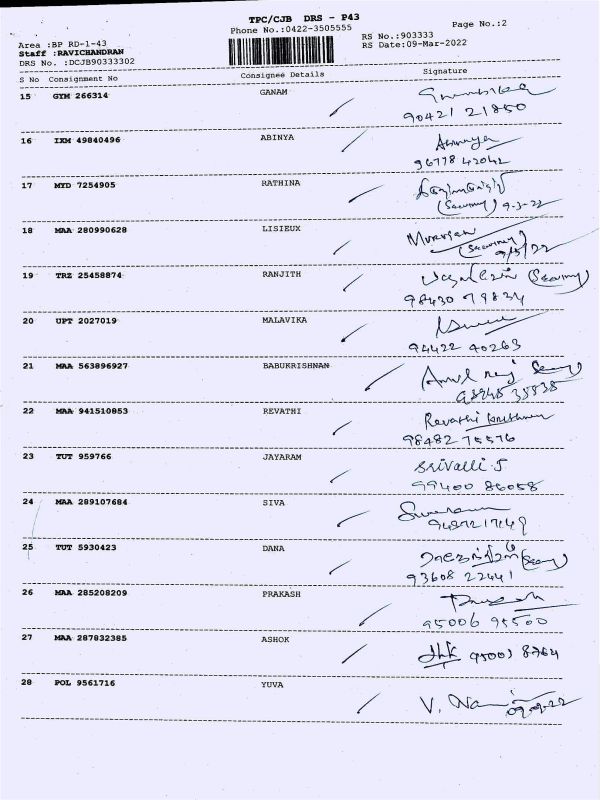 TPC/CJB DRS - P43
Phone No.:0422-3505555
Page No.:2
Area :BP RD-1-43
RS No.:903333
Staff :RAVICHANDRAN
RS Date:09-Mar-2022
DRS No. :DCJB90333302
S No Consignment No Consignee Details Signature
15 GYM 266314 GANAM
90421 21850
16 IXM 49840496 ABINYA Abinaya
96778 42042
17 MYD 7254905 RATHINA
(Security) 9-3-22
18 MAA 280990628 LISIEUX Murugan
(Security)
9/3/22
19 TRZ 25458874 RANJITH (Security)
98430 79834
20 UPT 2027019 MALAVIKA
94422 40263
21 MAA 563896927 BABUKRISHNAN
98948 35838
22 MAA 941510853 REVATHI Revathi Krishnan
98482 75576
23 TUT 959766 JAYARAM Srivalli.J
99400 86058
24 MAA 289107684 SIVA
25 TUT 5930423 DANA
93608 22441
26 MAA 285208209 PRAKASH
95006 95500
27 MAA 287832385 ASHOK
28 POL 9561716 YUVA